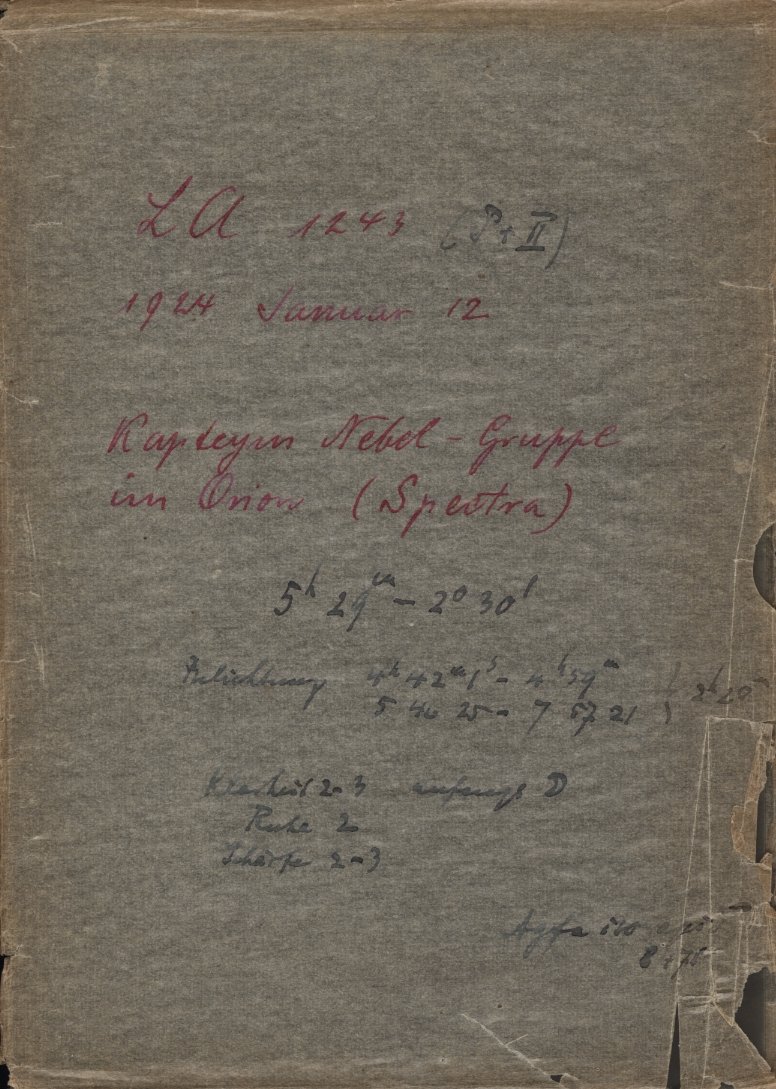 LA 1243 (P + II)
1924 Januar 12
Kapteyn Nebel-Gruppe
im Orion (Spectra)
5h 29m – 2° 30'
Belichtung 4h 42m 1s – 4h 59m
5 46 25 – 7 57 21
Klarheit 2-3 anfangs D
Ruhe 2
Schärfe 2-3
Agfa